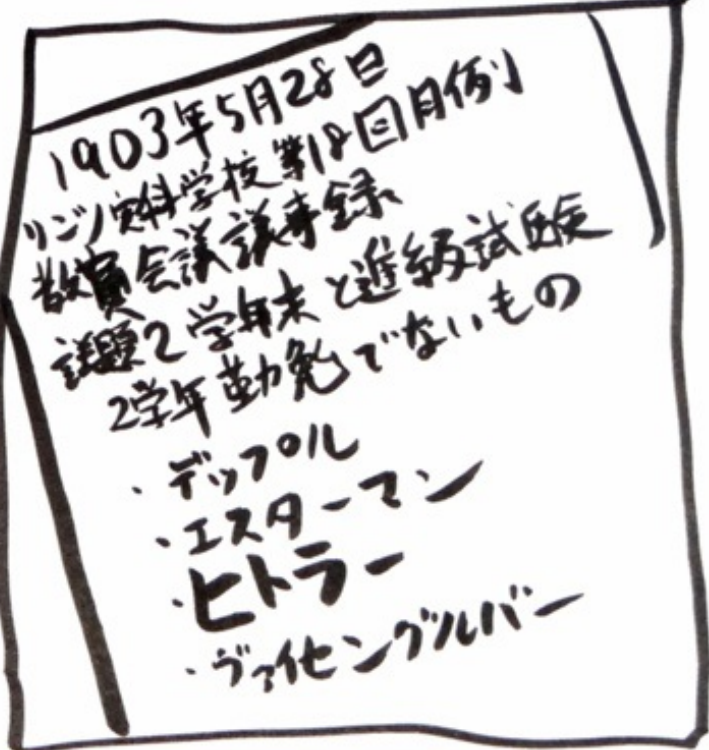 1903年5月28日
リンツ実科学校第18回月例
教員会議議事録
議題2 学年末と進級試験
2学年勤勉でないもの
・デップル
・エスターマン
・ヒトラー
・ヴァイセングルバー